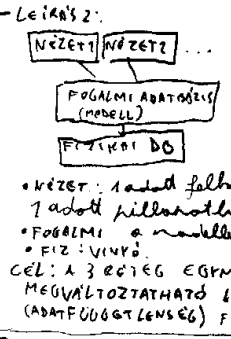 - LEÍRÁS 2:
NÉZET1 NÉZET2 ...
FOGALMI ADATBÁZIS
(MODELL)
FIZIKAI DB
• NÉZET: 1 adott felh
1 adott pillanatb
• FOGALMI a modelle
• FIZ: VINYÓ
CÉL: A 3 RÉTEG EGYM
MEGVÁLTOZTATHATÓ
(ADATFÜGGETLENSÉG) F